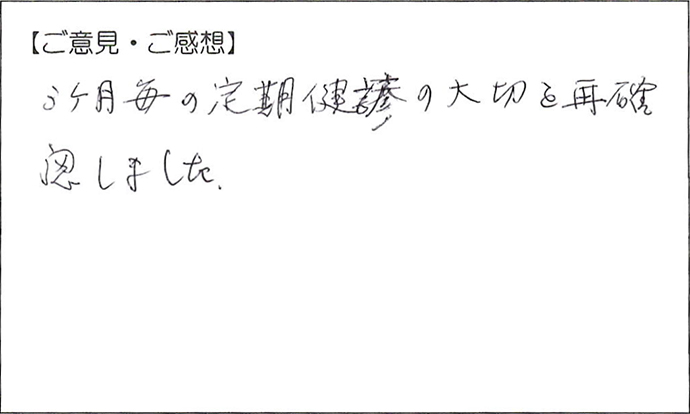 【ご意見・ご感想】
3ケ月毎の定期健診の大切を再確
認しました.